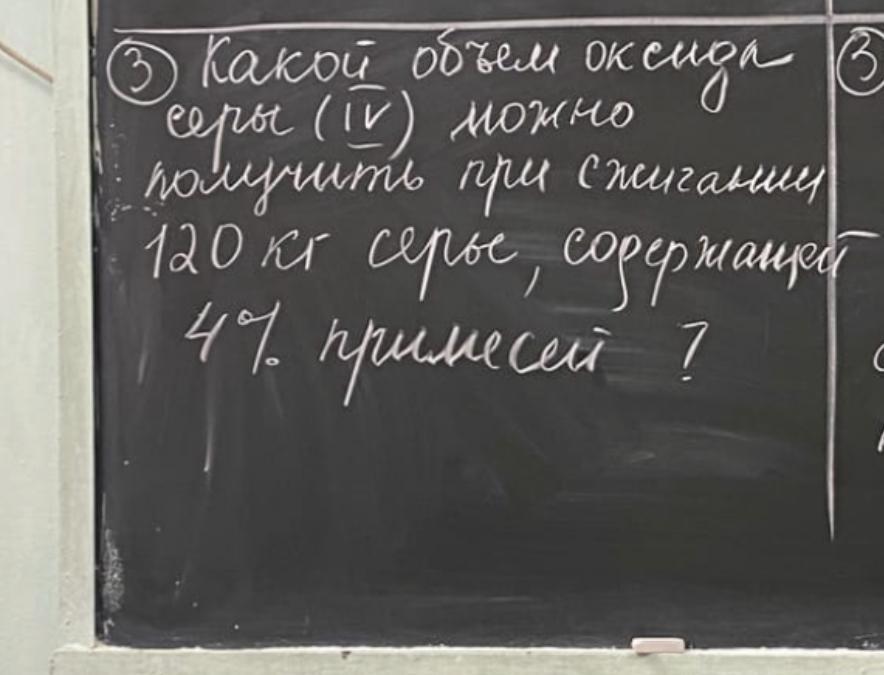 ③ Какой объем оксида
серы (IV) можно
получить при сжигании
120 кг серы, содержащей
4% примесей ?
③